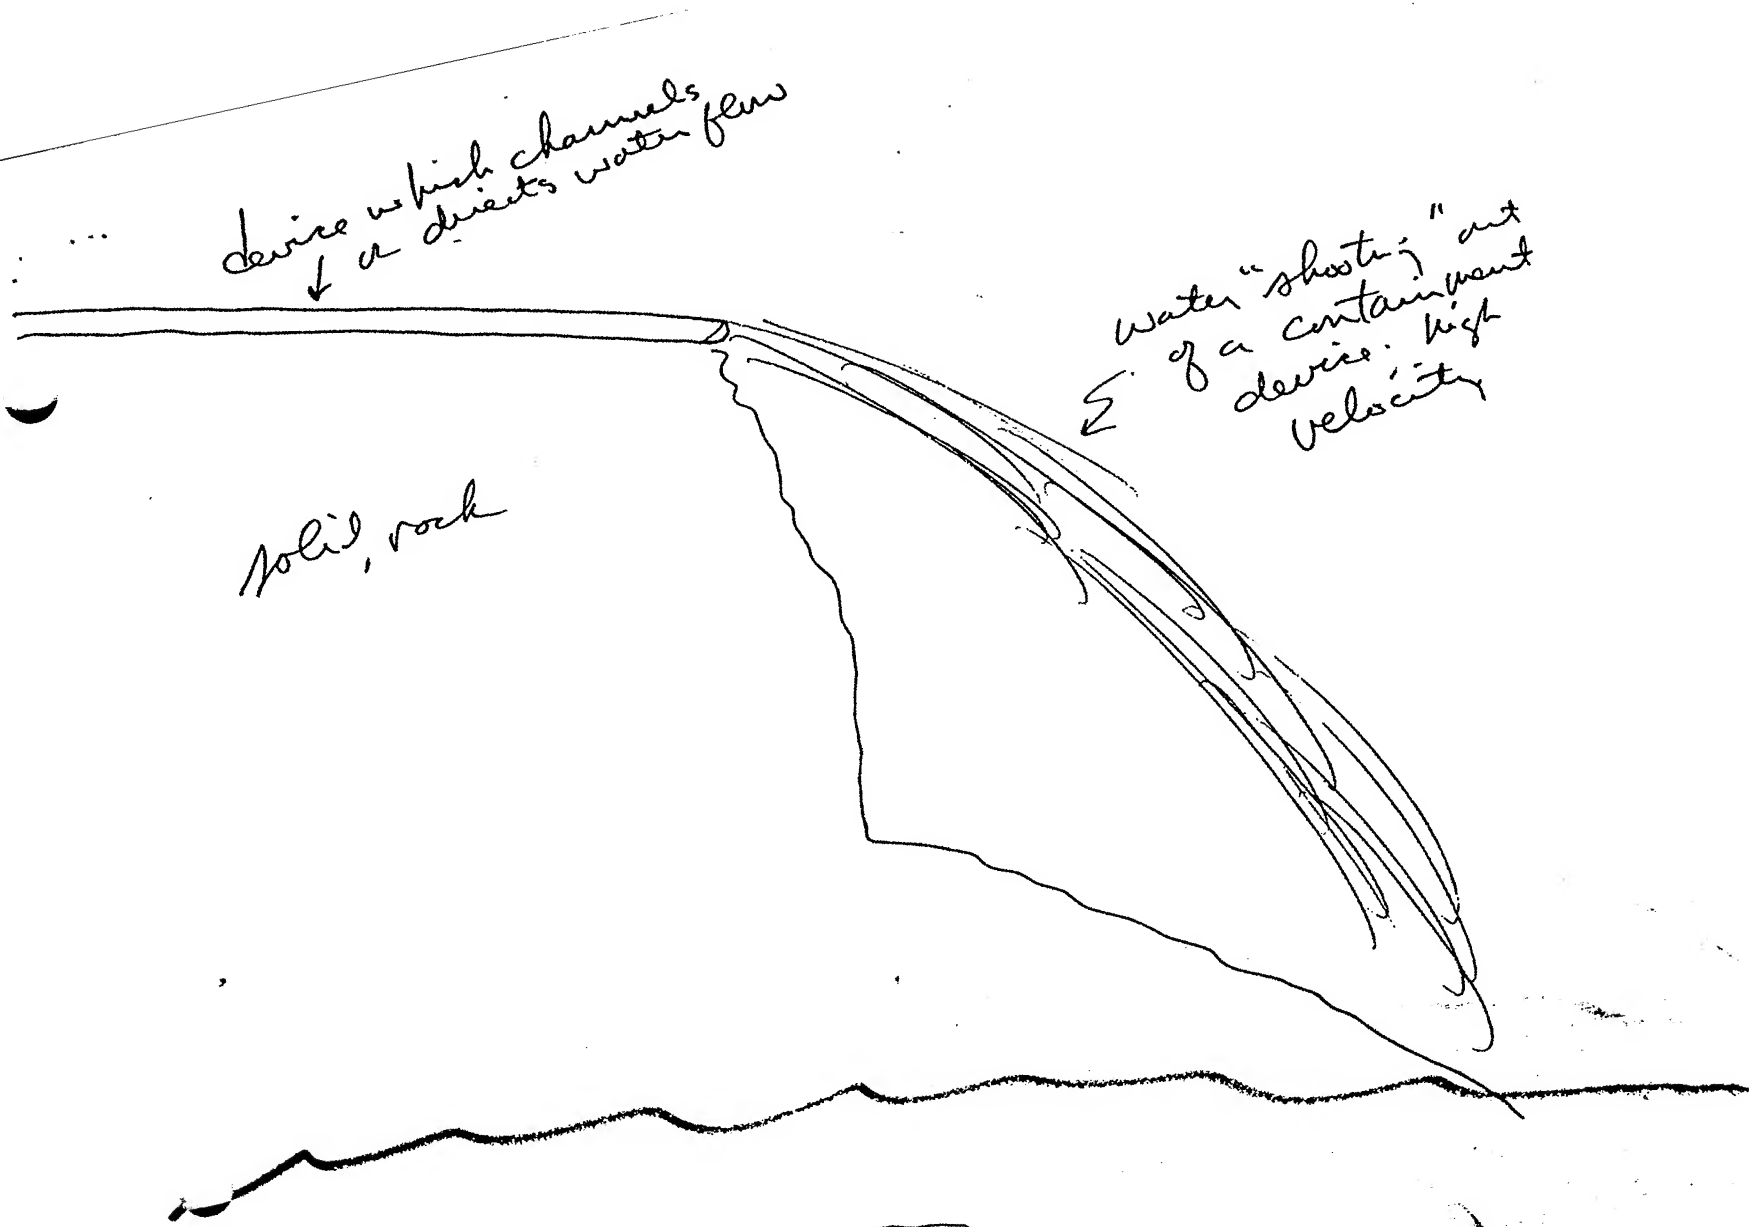 device which channels
or directs water flow
water "shooting" out
of a containment
device; high
velocity
solid, rock